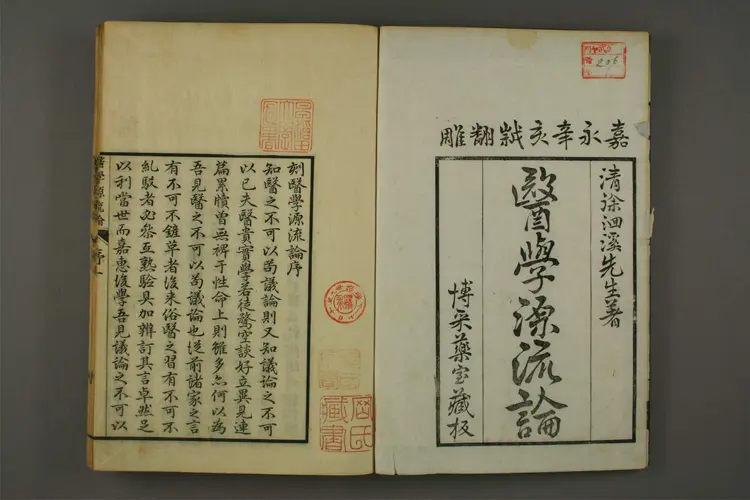 嘉永辛亥歲翻雕
清徐洄溪先生著
醫學源流論
博采藥室藏板
刻醫學源流論序
知醫之不可以苟議論則又知議論之不可
以已夫醫貴實學若徒騖空談好立異見連
篇累牘曾無裨于性命上則雖多亦何以為
吾見醫之不可以苟議論也從前諸家之言
有不可不鏟草者後來俗醫之習有不可不
糺駁者必參互熟驗具加辨訂其言卓然足
以利當世而嘉惠後學吾見議論之不可以
醫學源流論 序 一
藏書
206